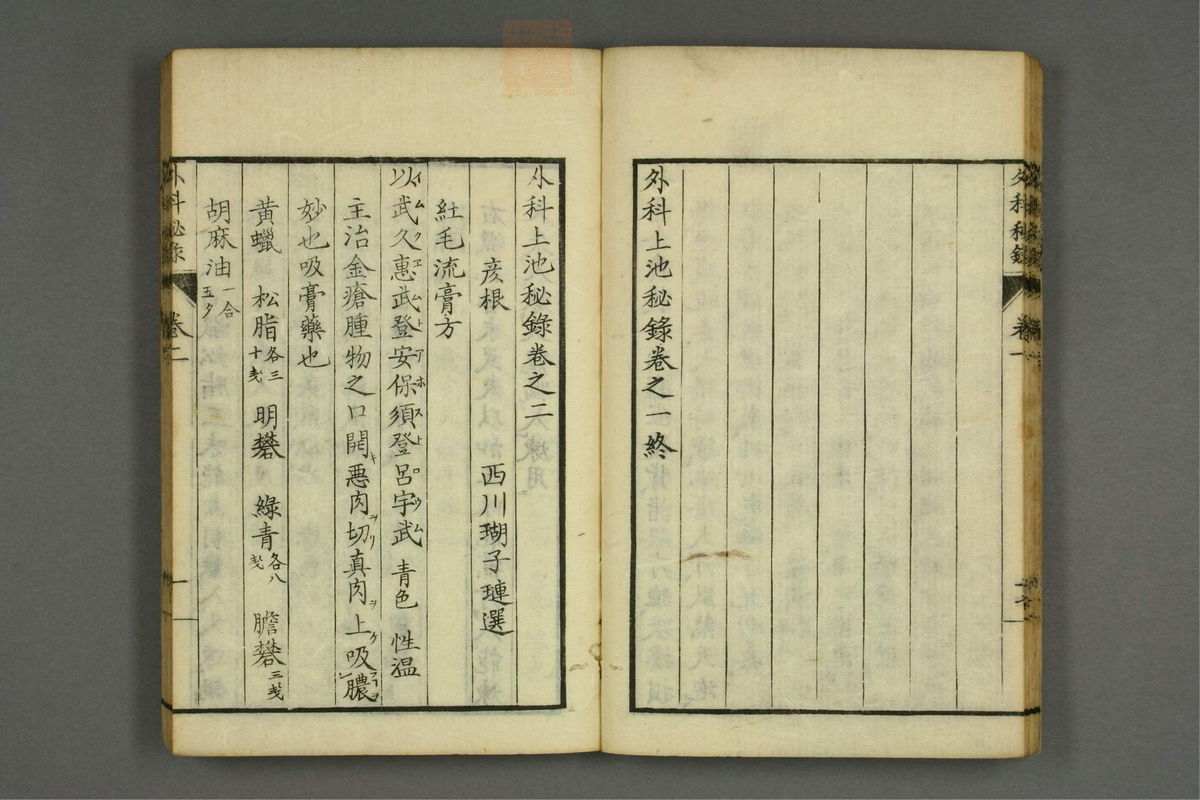 外科上池秘錄卷之一終
外科秘錄
卷一
外科上池秘錄卷之二
彦根　西川瑚子璉選
紅毛流膏方
以武久惠武登安保須登呂宇武　青色　性温
イムクエムトアホストロウム
主治金瘡腫物之口開キ悪肉ヲ切リ真肉ヲ上ケ吸膿
妙也吸膏藥也
黄蠟　松脂各三十戔　明礬　綠青各八戔　膽礬三戔
胡麻油一合五夕
外科秘錄
卷二
一